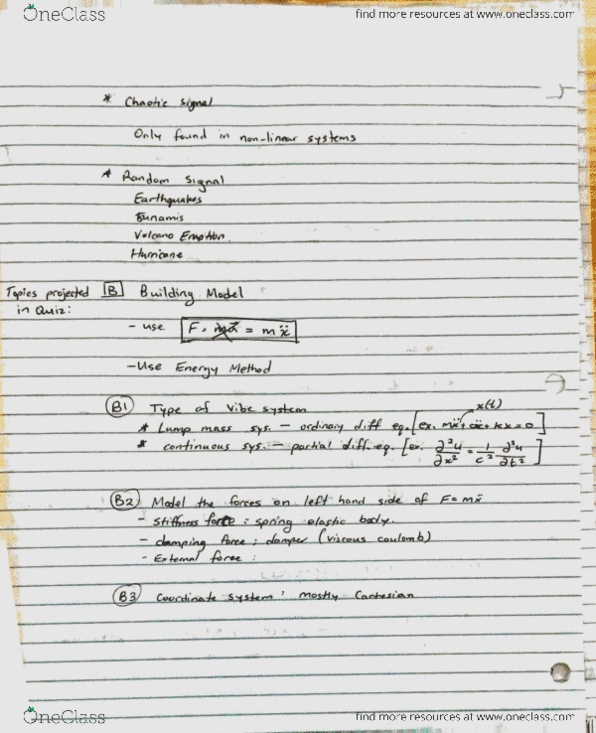 OneClass
find more resources at www.oneclass.com
* Chaotic signal
Only found in non-linear systems
* Random Signal
Earthquakes
Tsunamis
Volcano Eruption
Hurricane
Topics projected [B] Building Model
in Quiz:
- use F = ma = mẍ
-Use Energy Method
(B1) Type of Vibe system
x(t)
* Lump mass sys. - ordinary diff eq. [ex. mẍ+cẋ+kx=0]
* continuous sys. - partial diff eq. [ex. ∂²u/∂x² = 1/c² ∂²u/∂t²]
(B2) Model the forces on left hand side of F=mẍ
- Stiffness force : spring elastic body.
- damping force : damper (viscous coulomb)
- External force :
(B3) Coordinate system : mostly Cartesian
OneClass
find more resources at www.oneclass.com